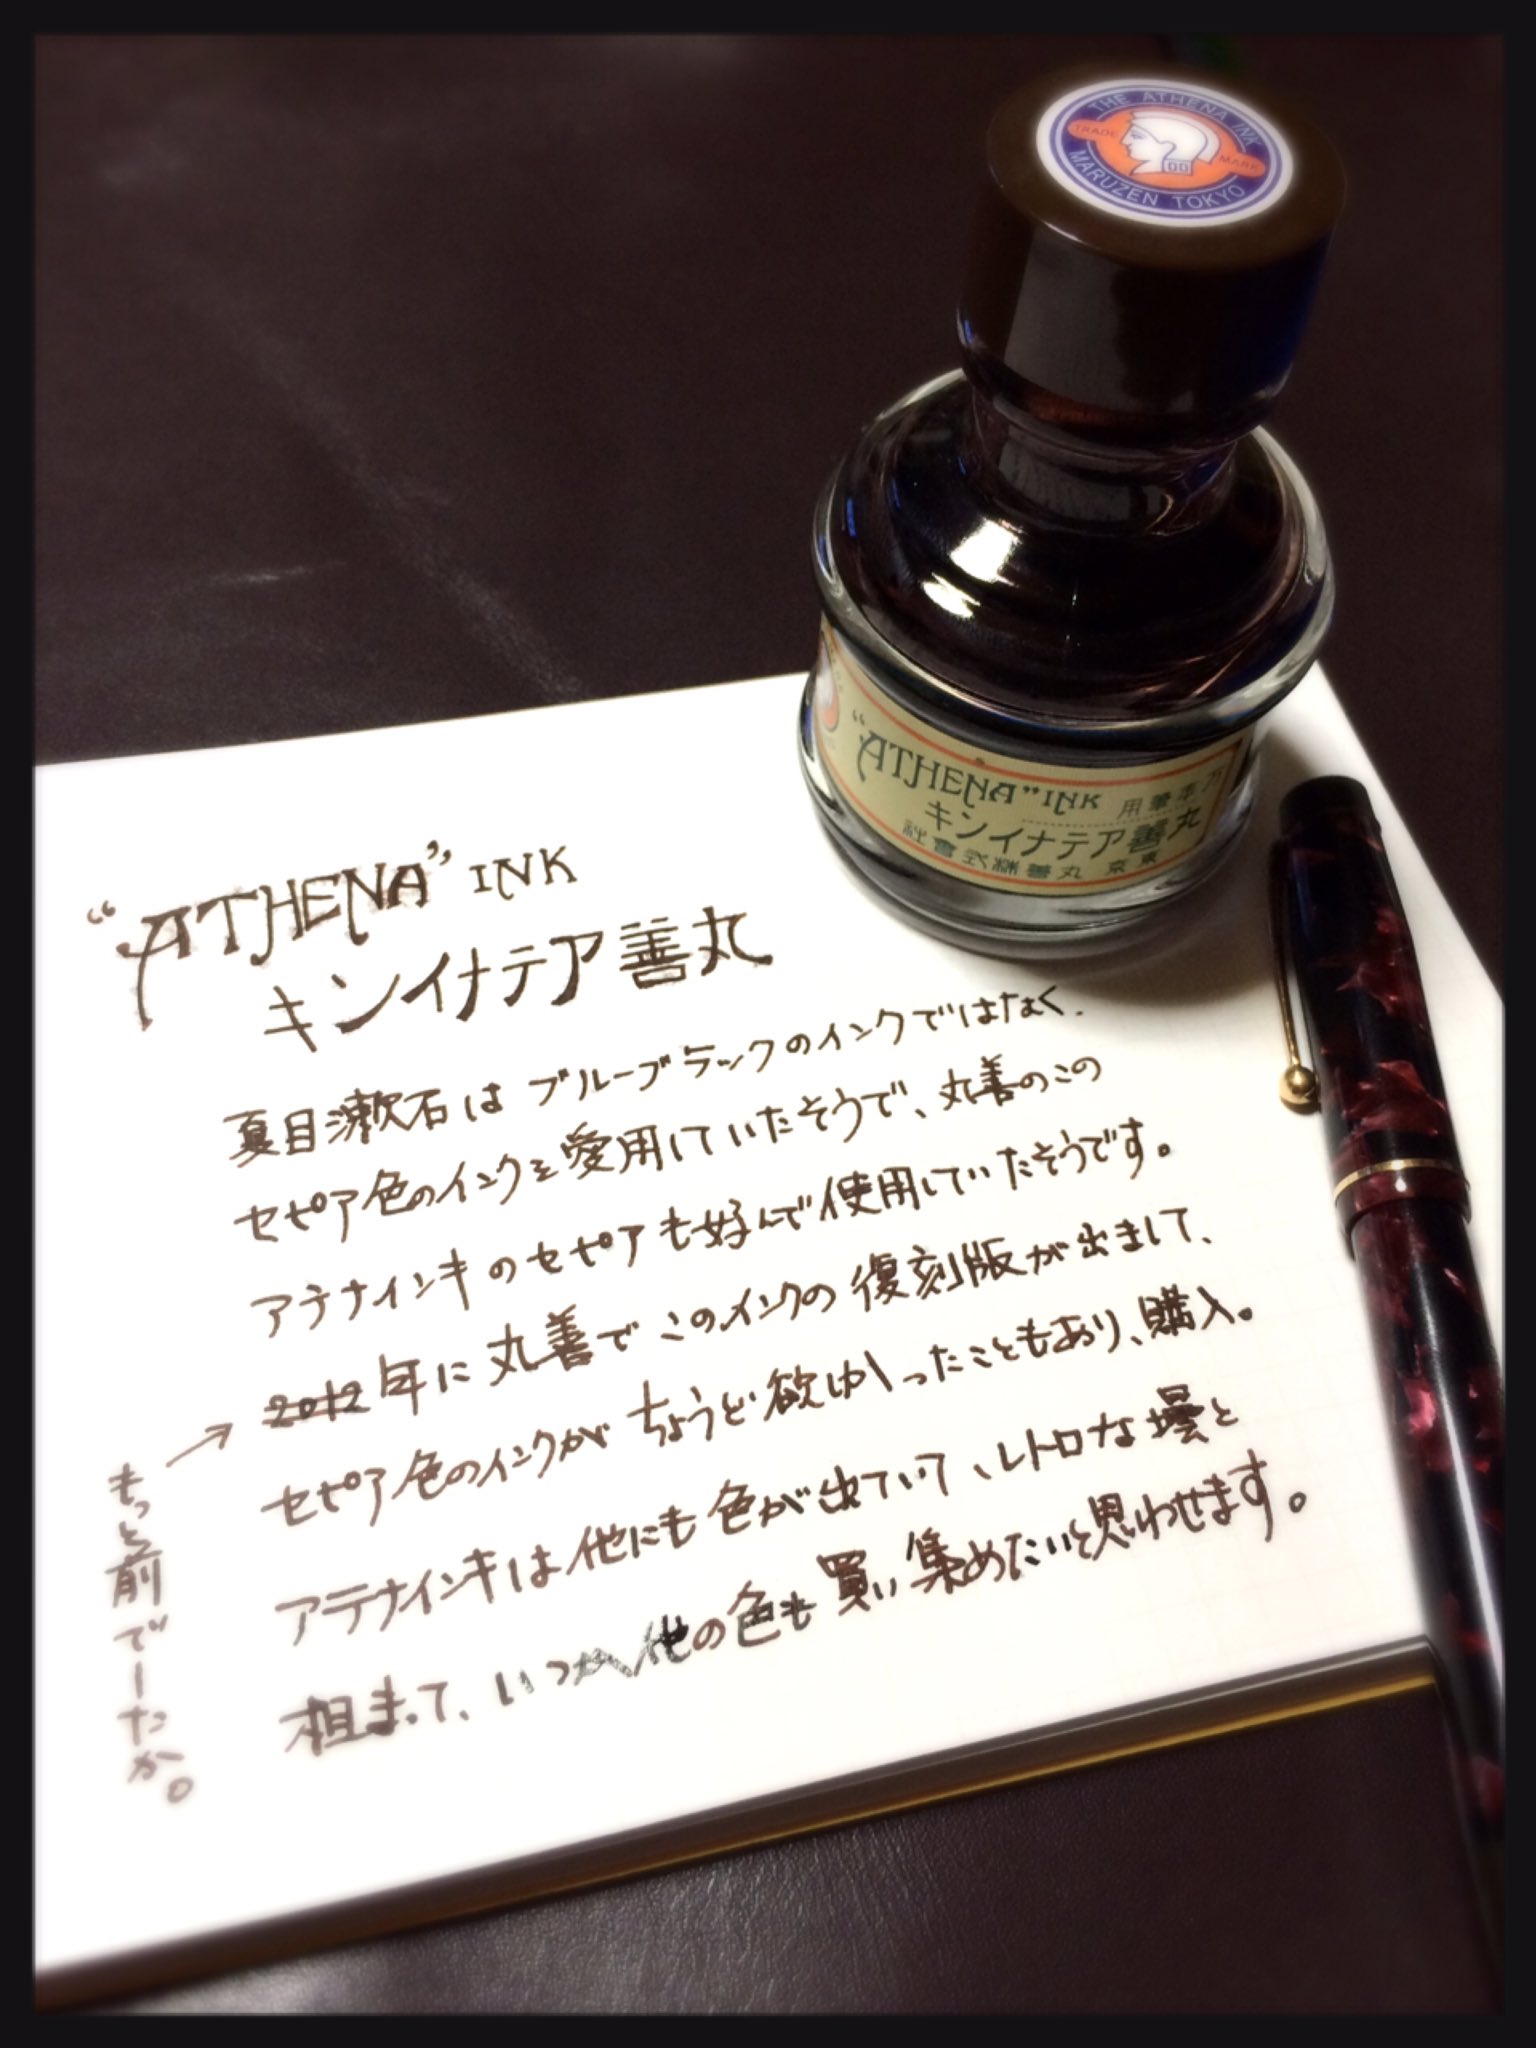 THE ATHENA INK
TRADE MARK
MARUZEN TOKYO
"ATHENA" INK
用筆年万
キンイナテア善丸
社會式株善丸 京東
"ATHENA" INK
キンイナテア善丸
夏目漱石はブルーブラックのインクではなく、
セピア色のインクを愛用していたそうで、丸善のこの
アテナインキのセピアも好んで使用していたそうです。
2012年に丸善でこのインクの復刻版が出まして、
セピア色のインクがちょうど欲しかったこともあり、購入。
アテナインキは他にも色が出ていて、レトロな壜と
相まって、いつか他の色も買い集めたいと思わせます。
→
もっと前でしたか。